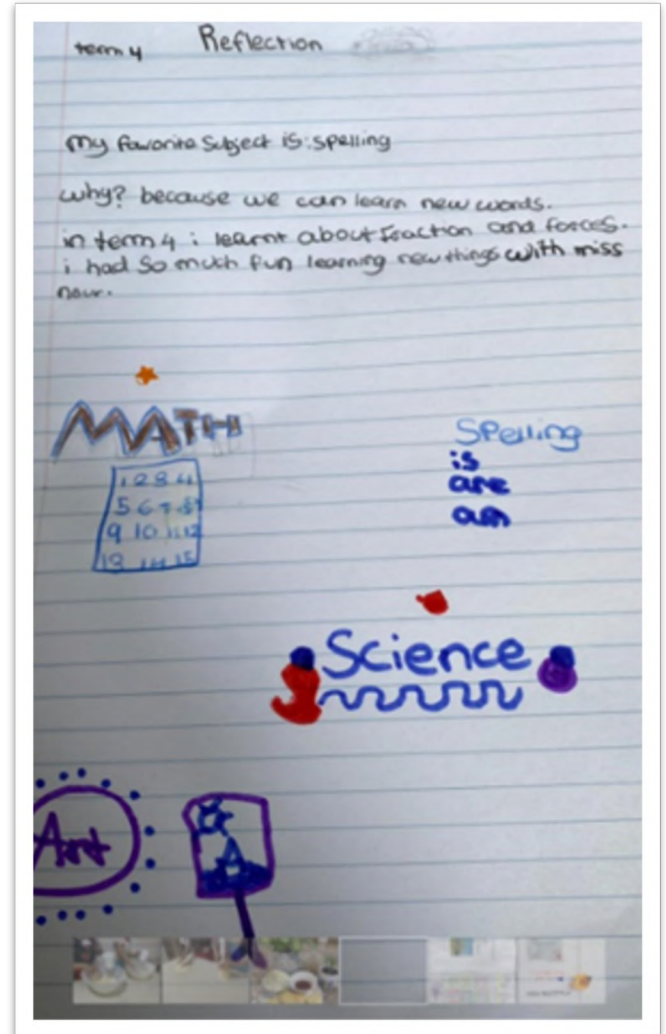 term 4 Reflection
my favorite Subject is: spelling
why? because we can learn new words.
in term 4 i learnt about fraction and forces.
i had so much fun learning new things with miss
nour.
MATH
1 2 3 4
5 6 7 8
9 10 11 12
13 14 15
Spelling
is
are
am
Science
Art